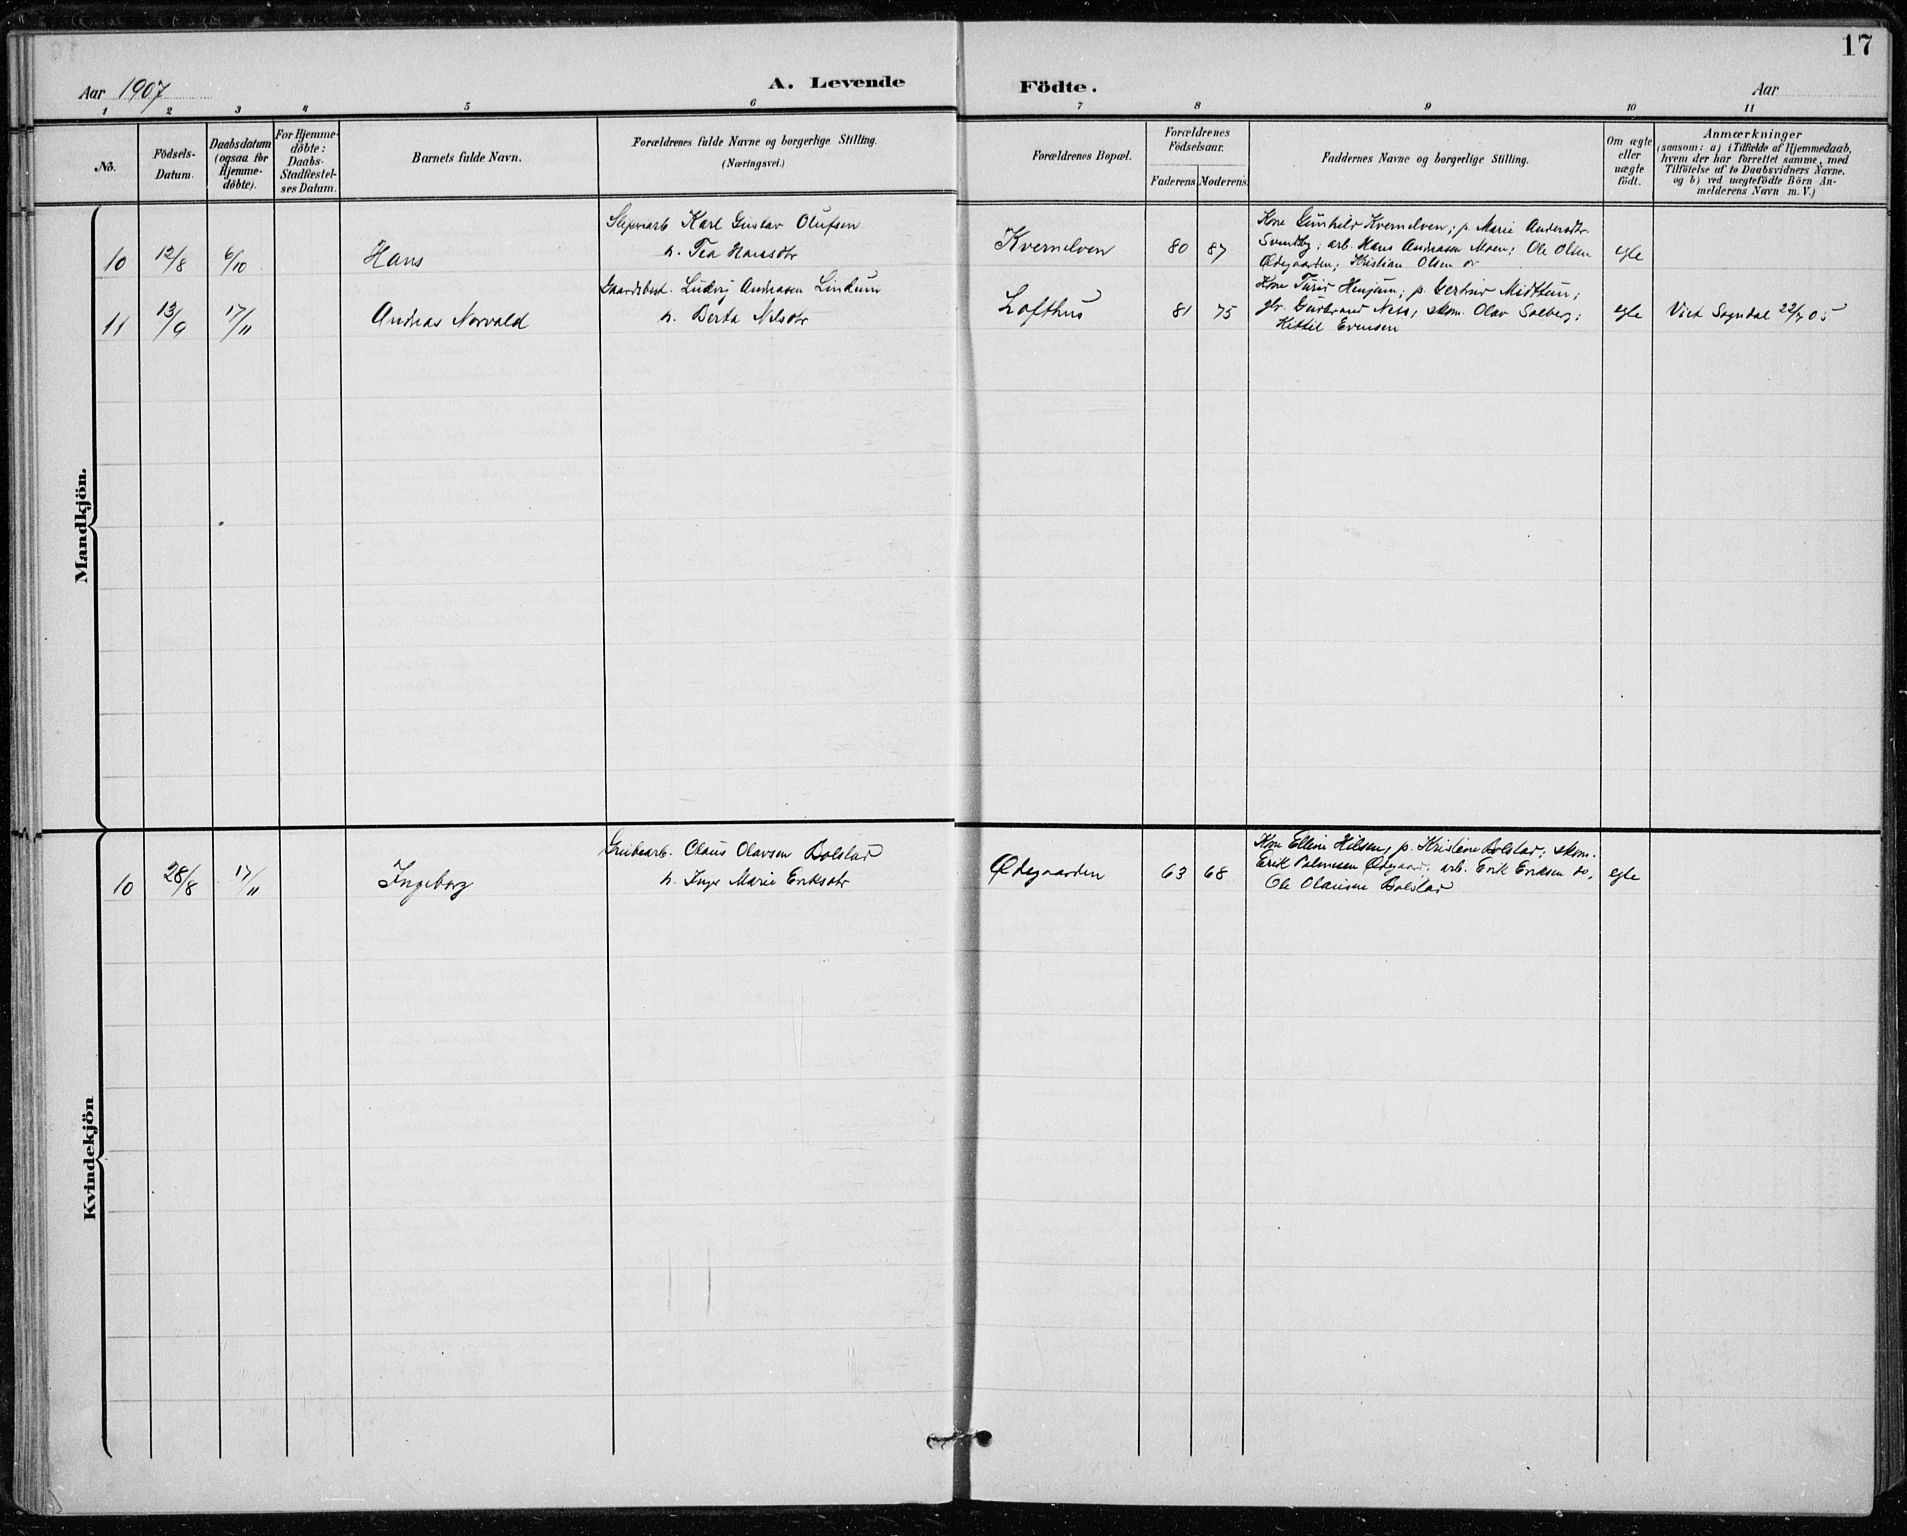 17
Aar 1907
A. Levende
Födte.
Aar
1 2 3 4 5 6 7 8 9 10 11
No.
Födsels-
Datum.
Daabsdatum
(ogsaa for
Hjemme-
döbte).
For Hjemme-
döbte:
Daabs-
Stadfestel-
ses Datum.
Barnets fulde Navn.
Forældrenes fulde Navne og borgerlige Stilling.
(Næringsvei.)
Forældrenes Bopæl.
Forældrenes
Födselsaar.
Faderens Moderens
Faddernes Navne og borgerlige Stilling.
Om ægte
eller
uægte
födt.
Anmærkninger
(saasom: a) i Tilfælde af Hjemmedaab,
hvem der har forrettet samme, med
Tilföielse af to Daabsvidners Navne.
og b) ved uægtefödte Börn An-
melderens Navn m. V.)
Mandkjön.
10 12/8 6/10 Hans
Karl Gustav Olufsen
h. Tea Hansdtr
Kvernelven 80 87
Kone Gunhild Kvernelven; p. Marie Andersdtr.
Svendby; arb. Hans Andreasen Moen; Ole Olsen
Ødegaarden; Kristian Olsen do
egte
11 13/9 17/11 Andreas Norvald
Gaardsbest. Ludvig Andreasen Linkum
h. Berta Nilsdtr
Lofthus 81 75
Kone Turid Henjum; p. Gertrud Midttun;
gbr. Gudbrand Ness; skom. Olav Solberg;
Kittil Evensen
egte Viet Sogndal 22/7 05
Kvindekjön
10 28/8 17/11 Ingeborg
Grubearb. Olaus Olavsen Bolstad
h. Inger Marie Eriksdtr
Ødegaarden 63 68
Kone Elline Nilsen, p. Kristine Bolstad; skom.
Erik Ødegaard; arb. Erik Eriksen do,
Ole Olausen Bolstad
egte